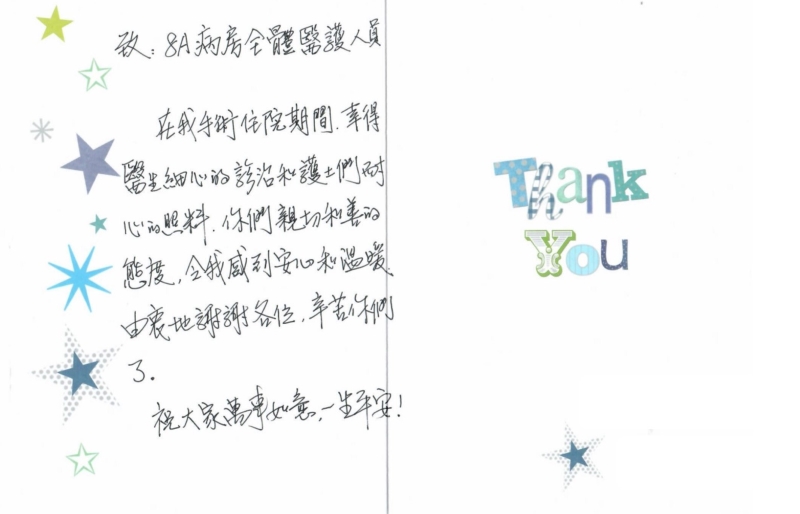 致：8A病房全體醫護人員
在我手術住院期間．幸得
醫生細心的診治和護士們耐
心的照料．你們親切和善的
態度，令我感到安心和溫暖
由衷地謝謝各位，辛苦你們
了．
祝大家萬事如意，一生平安！
Thank
You